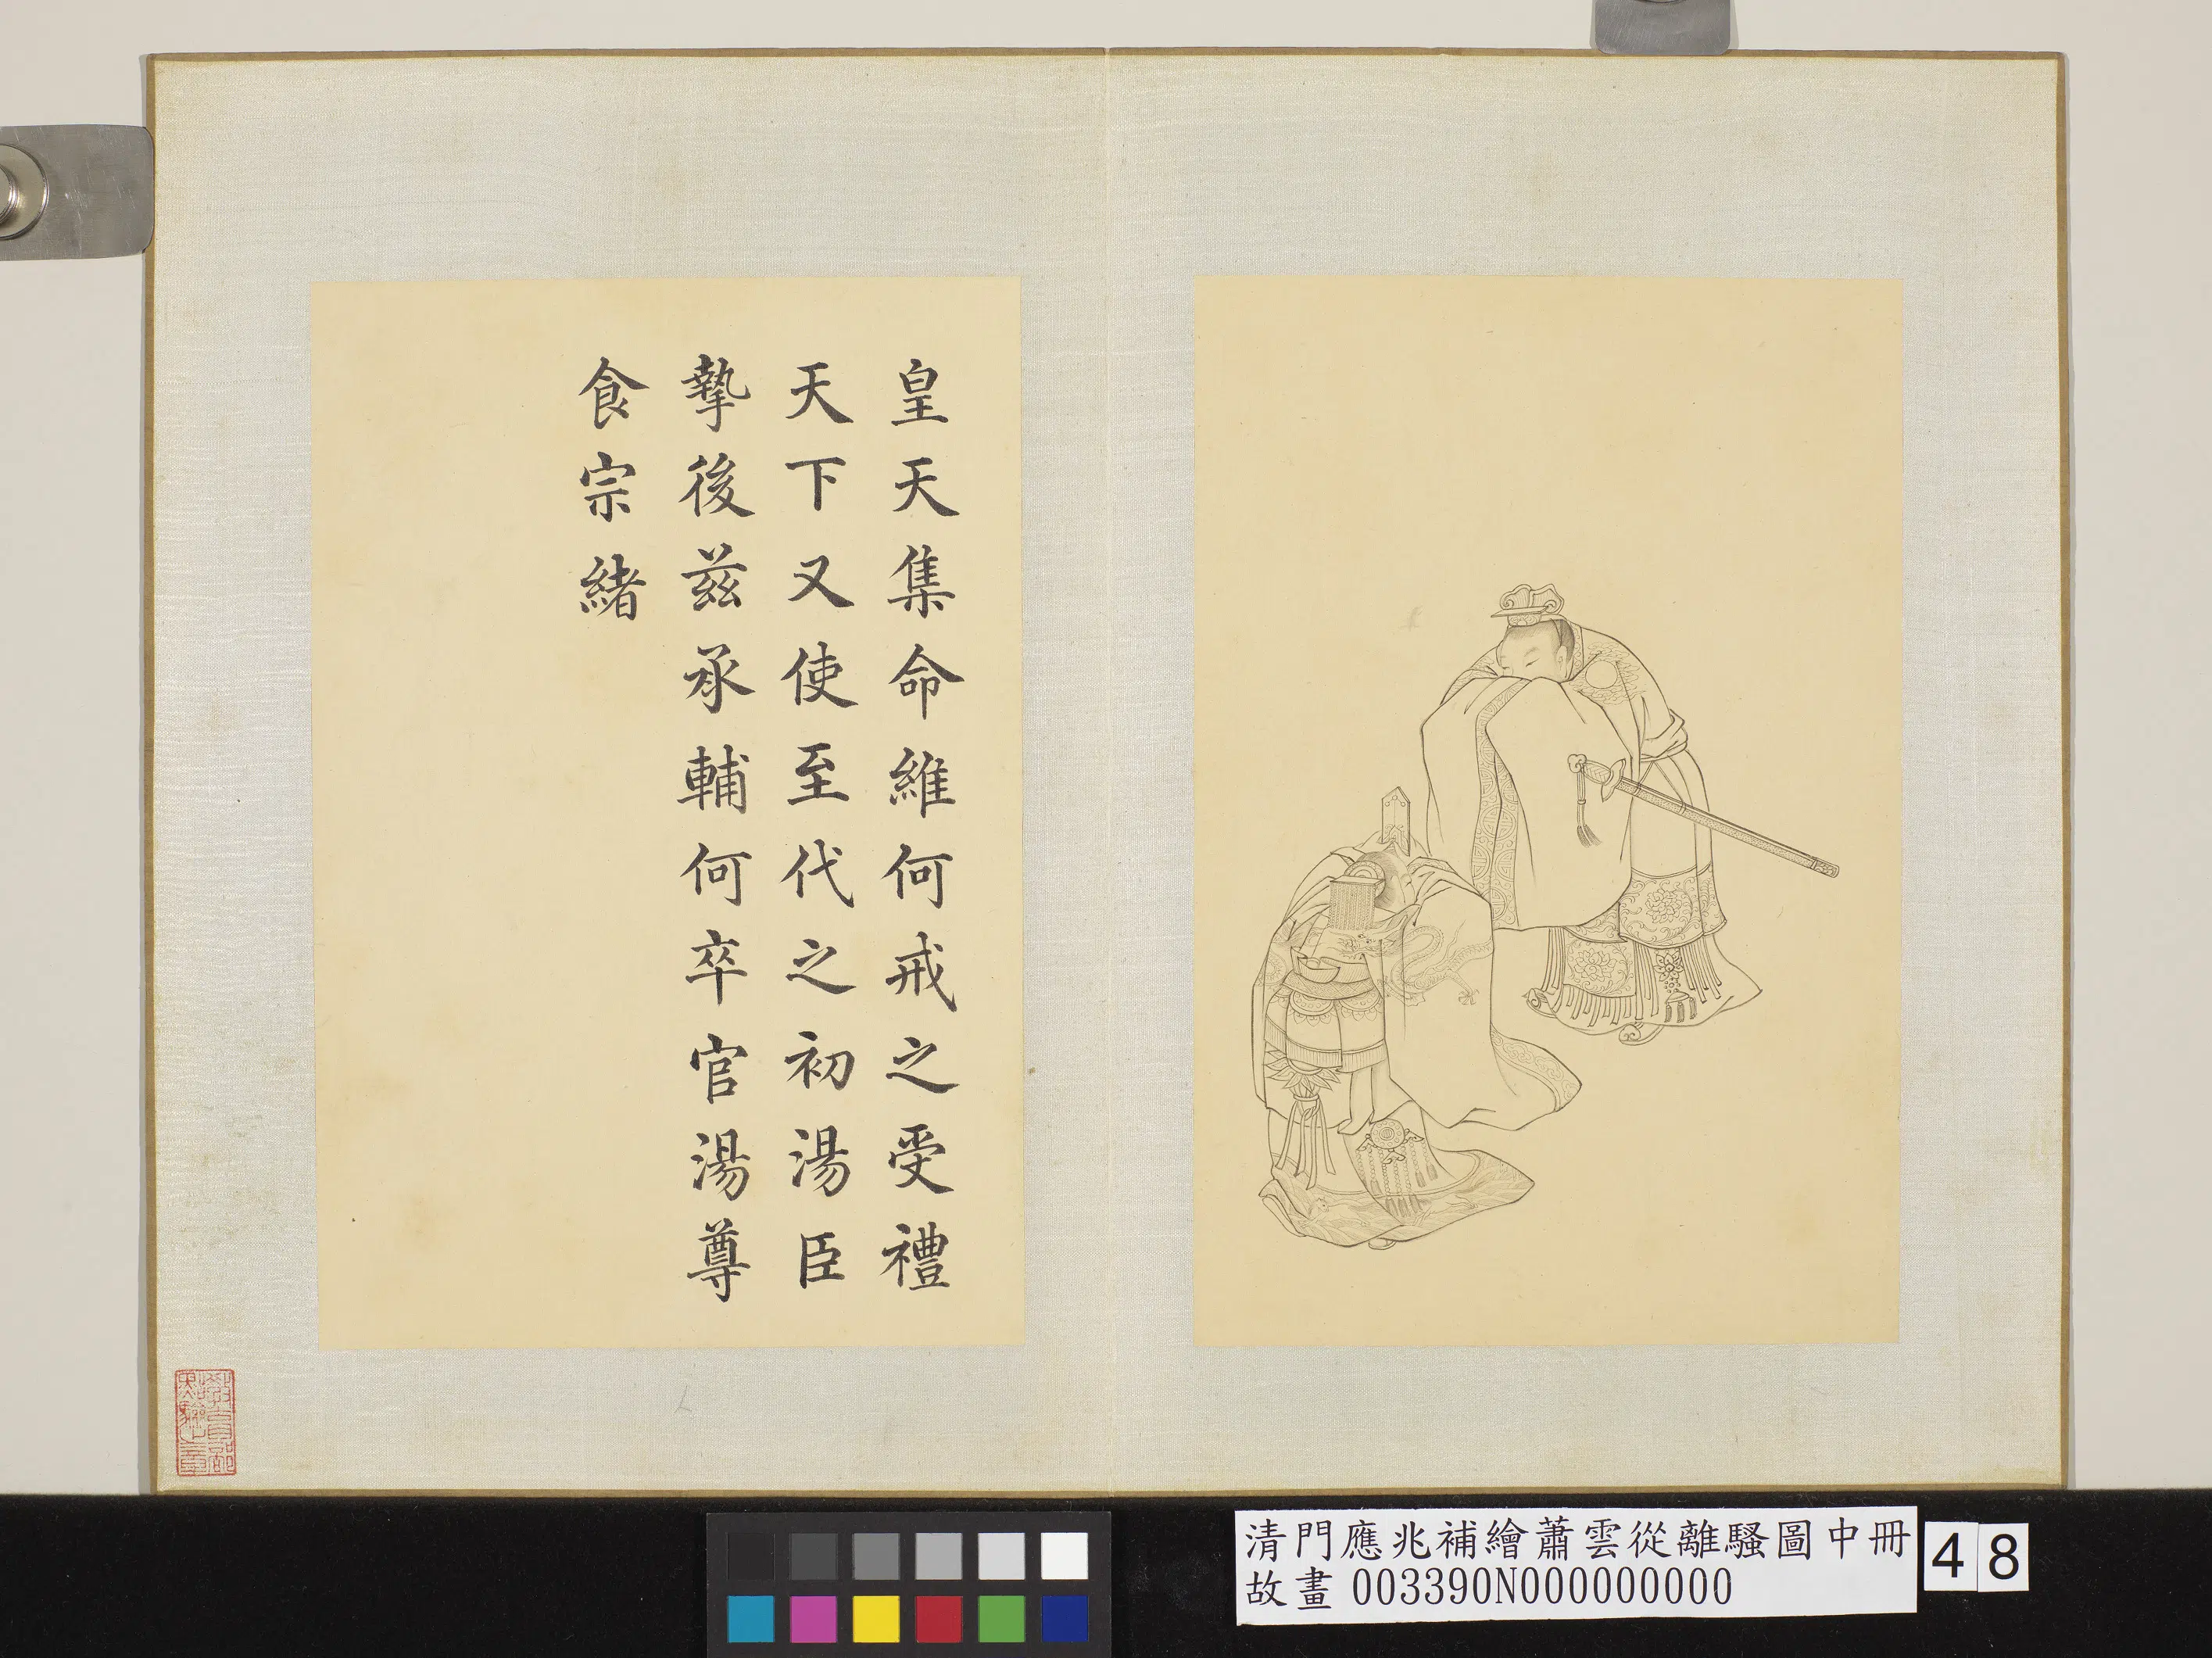 皇天集命維何戒之受禮
天下又使至代之初湯臣
摯後茲承輔何卒官湯尊
食宗緒
教育部
點驗之章
清門應兆補繪蕭雲從離騷圖中冊
故畫 003390N000000000
48